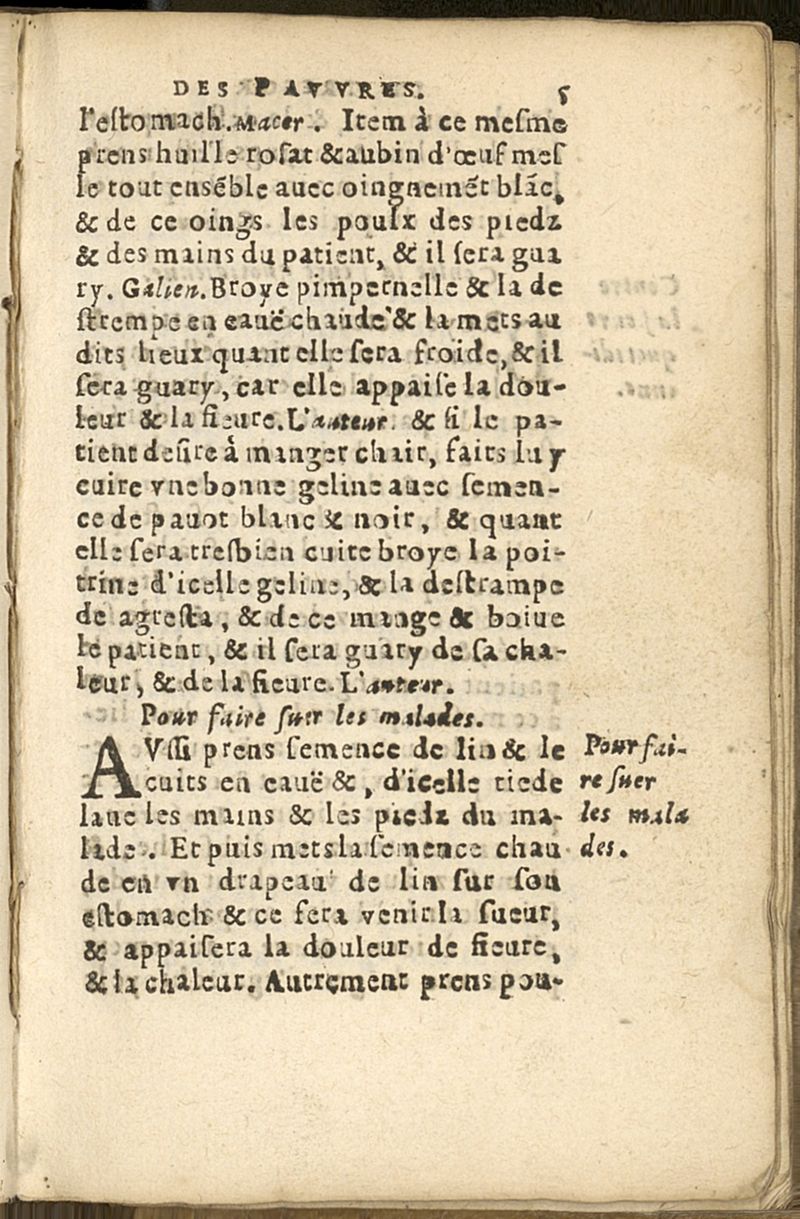 DES PAVVRES. 5
l'estomach. Macer. Item à ce mesme
prens huille rosat & aubin d'œuf mes
le tout ensẽble auec oingnemẽt blãc,
& de ce oings les poulx des piedz
& des mains du patient, & il sera gua
ry. Galien. Broye pimpernelle & la de
strempe en eauë chaude & la mets au
dits lieux quant elle sera froide, & il
sera guary, car elle appaise la dou-
leur & la fieure. L'auteur. & si le pa-
tient desire à manger chair, faits luy
cuire vne bonne geline auec semen-
ce de pauot blanc & noir, & quant
elle sera tresbien cuite broye la poi-
trine d'icelle geline, & la destrampe
de agresta, & de ce mange & boiue
le patient, & il sera guary de sa cha-
leur, & de la fieure. L'auteur.
Pour faire suer les malades.
AVssi prens semence de lin & le
cuits en eauë &, d'icelle tiede
laue les mains & les piedz du ma-
lade. Et puis mets la semence chau
de en vn drapeau de lin sur son
estomach & ce fera venir la sueur,
& appaisera la douleur de fieure,
& la chaleur. Autrement prens pou-
Pour fai-
re suer
les mala
des.